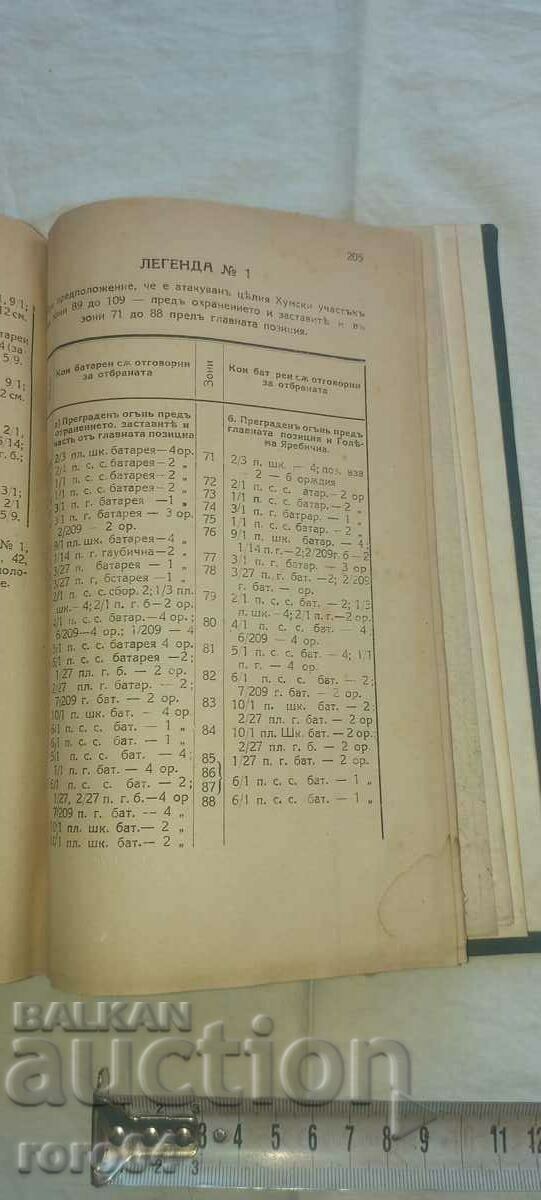 205
ЛЕГЕНДА № 1
предположение, че е атакуванъ цѣлия Хумски участъкъ
зони 89 до 109 — предъ охранението и заставитѣ и въ
зони 71 до 88 предъ главната позиция.
Кои батареи сѫ отговорни
за отбраната
Зони
Кои бат реи сѫ отговорни
за отбраната
а) Преграденъ огънь предъ
охранението, заставитѣ и
часть отъ главната позиция
2/3 пл. шк. батарея—4 ор.
2/1 п. с. с. батарея—2 „
1/1 п. с. с. батарея—2 „
1/1 п. с. с. батарея—2 „
3/1 п. г. батарея —1 „
3/1 п. г. батарея — 3 ор.
2/209 — 2 ор.
9/1 пл. шк. батарея—4 „
1/14 п. г. гаубична—2 „
3/27 п. батарея — 1 „
3/27 п. г. бстарея — 1 „
2/1 п. с. с. сбор. 2; 1/3 пл.
шк.— 4; 2/1 п. г. б — 2 ор.
4/1 п. с. с. батар.—4 ор.;
6/209—4 ор.; 1/209 — 4
5/1 п. с. с. батарея 4 ор.
6/1 п. с. с. батарея —2;
1/27 пл. г. б. — 2 ор.
2/27 пл. г. батар. — 2;
7/209 г. бат. — 2 ор.
10/1 п. шк. бат. — 4 ор
6/1 п. с. с. бат. — 1 „
6/1 п. с. с. бат. — 1 „
5/1 п. с. с. бат. — 4;
1/1 п. г. бат. — 4 ор.
6/1 п. с. с. бат. — 2;
1/27, 2/27 п. г. б.—4 ор
7/209 п. г. бат. — 4 „
10/1 пл. шк. бат.— 2 „
10/1 пл. шк. бат.— 2 „
71
72
73
74
75
76
77
78
79
80
81
82
83
84
85
86
87
88
б. Преграденъ огънь предъ
главната позиция и Голѣ-
ма Яребична.
2/3 п. шк. — 4; поз. вза
— 2 — 6 орѫдия
2/1 п. с. с. атар.—2 ор
1/1 п. с. с. батар.—2 „
3/1 п. г. батрар. — 1 „
1/1 п. с. с. батар.— 2 „
9/1 п. шк. батар. — 4;
1/14 п. г.—2; 2/209 г. б—2
3/1 п. г. батар.— 3 ор
3/27 п. г. бат. — 2; 2/209
г. бат.— 2 ор.
2/1 п. с. с. бат. —2; 1/3
п. шк.— 4; 2/1 п. г.—2 ор.
4/1 п. с. с. бат. — 4;
6/209 — 4 ор.
5/1 п. с. с. бат.— 4; 1/1
п. г. — 4 ор.
6/1 п. с. с. бат. — 2;
7/209 г. бат. — 2 ор.
10/1 п. шк. бат. — 2
2/27 пл. г. бат.— 2 ор
10/1 пл. Шк. бат.— 2
2/27 пл. г. б. — 2 ор
1/27 п. г. бат. — 2 ор.
6/1 п. с. с. бат.— 1 „
6/1 п. с. с. бат.— 1 „
, 9/1;
2 см.
5/9.
9/1;
см.
2/1,
5/14;
г. б.;
3/1;
2/1
5/9.
№ 1,
42,
поло-
е.
BALKAN
auction
roro84
2 3
3 4 5 6 7 8 9 11 12
2 3